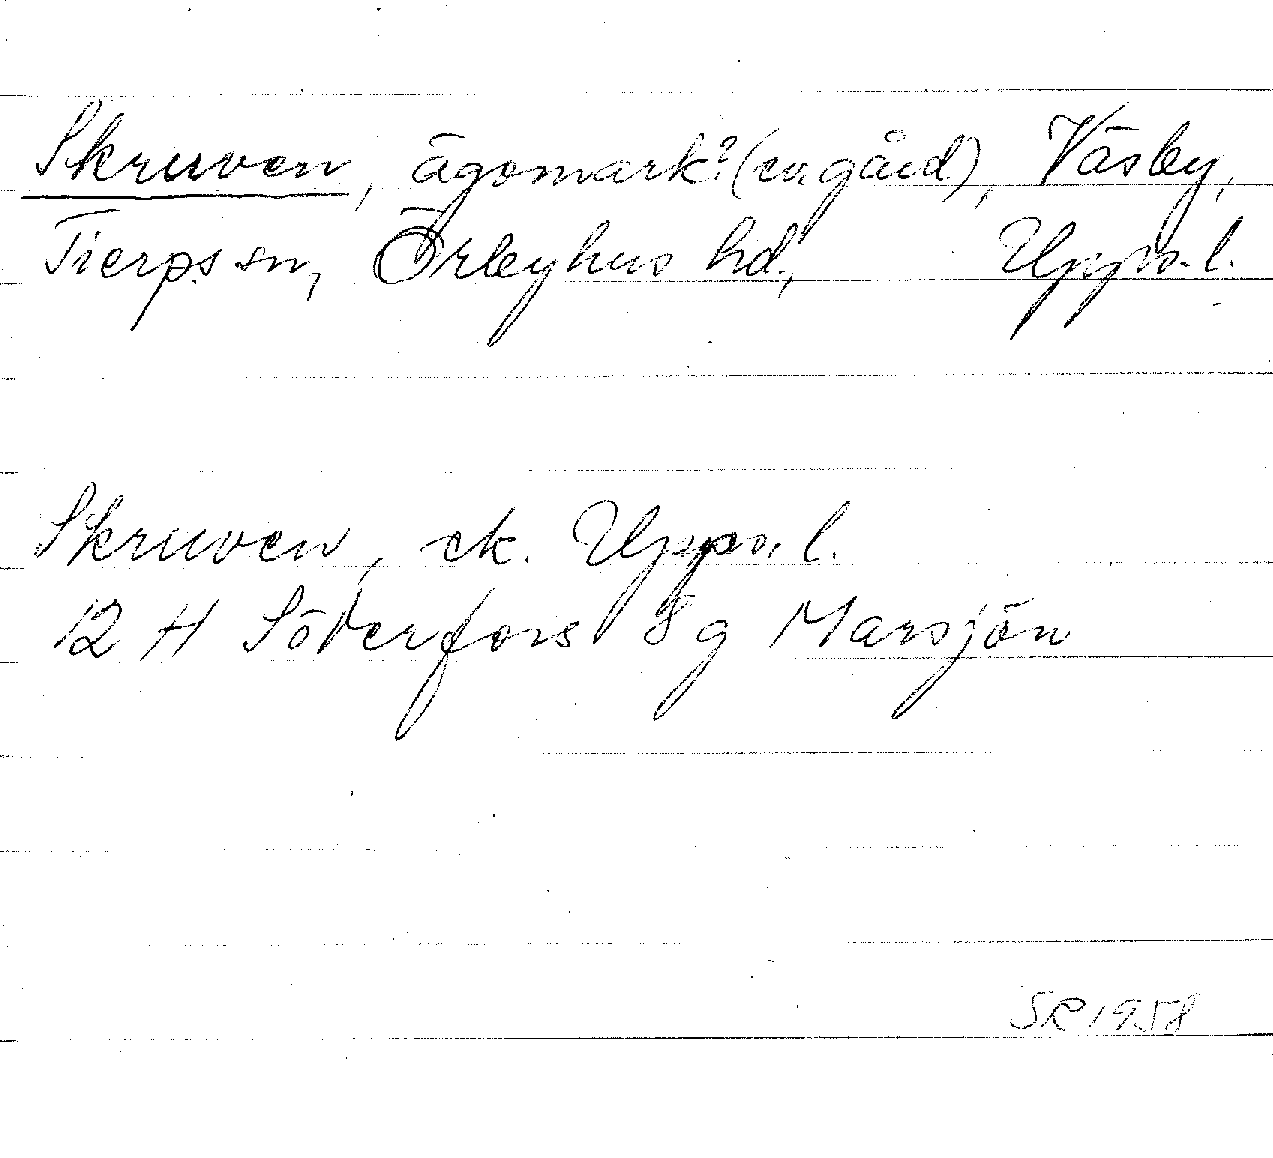 Skruven, ägomark? (en gård), Väsby,
Tierps sn, Örbyhus hd, Upps. l.
Skruven, ek. Upps. l.
12 H Söderfors 8 g Marsjön
SR 1958